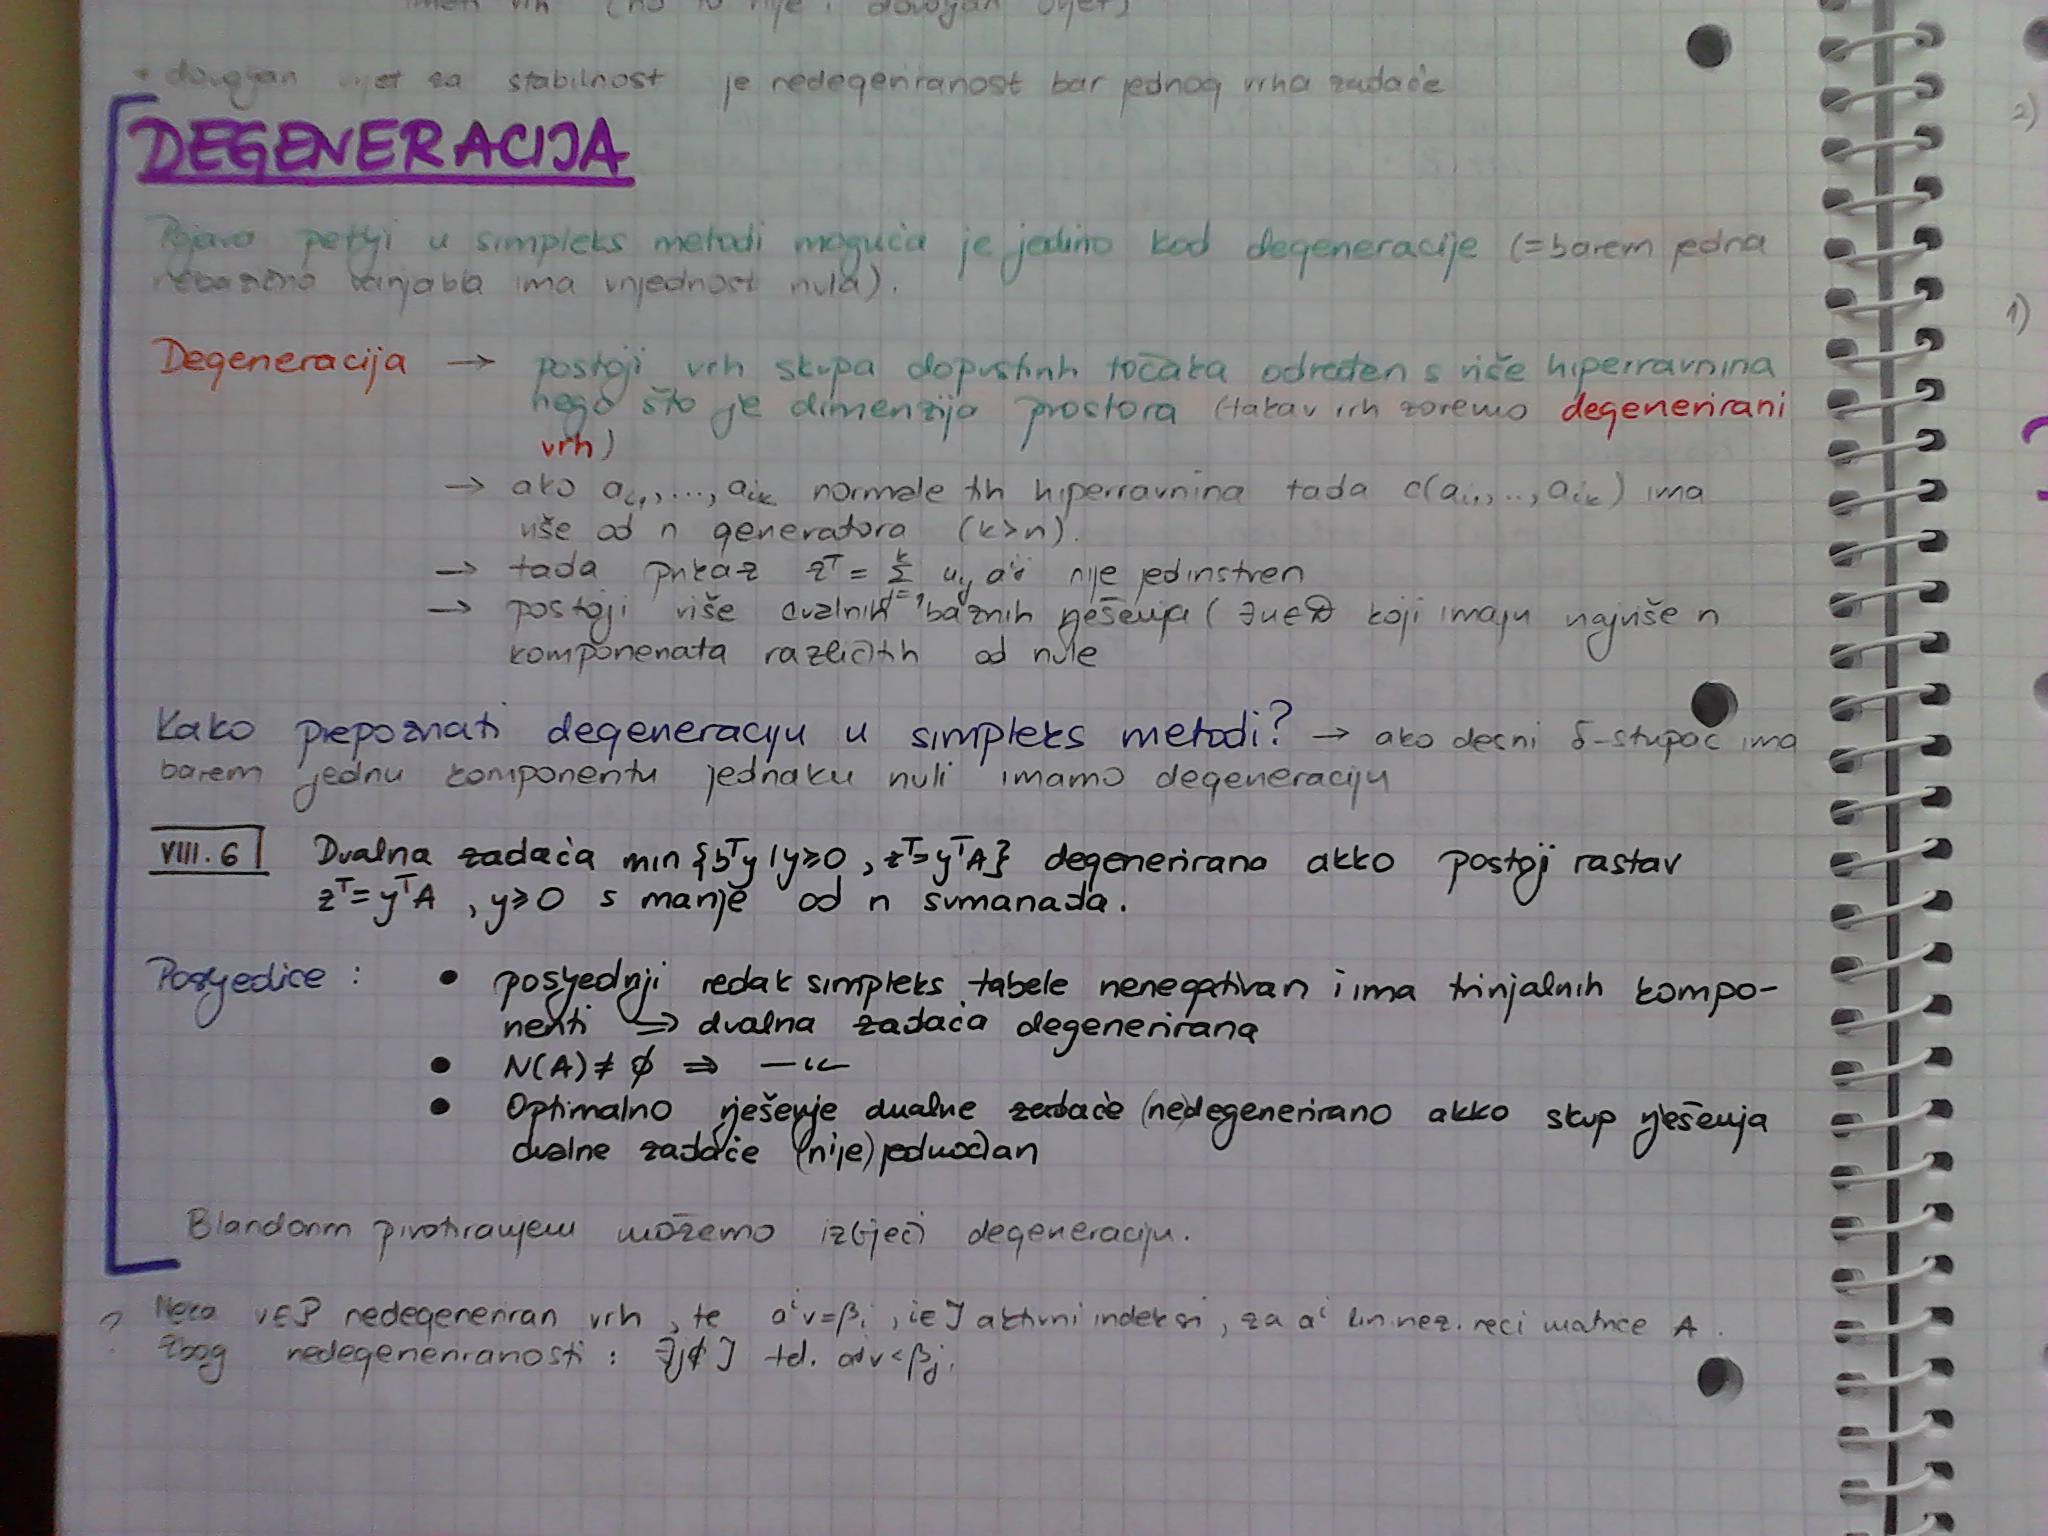 • dovoljan uvjet za stabilnost je nedegeniranost bar jednog vrha zadaće
DEGENERACIJA
Pojava petlji u simpleks metodi moguća je jedino kod degeneracije (=barem jedna
nebazična varijabla ima vrijednost nula).
Degeneracija → postoji vrh skupa dopustivih točaka određen s više hiperravnina
nego što je dimenzija prostora (takav vrh zovemo degenerirani
vrh)
→ ako a_{i_1},...,a_{i_k} normale tih hiperravnina tada c(a_{i_1},..,a_{i_k}) ima
više od n generatora (k>n).
→ tada prikaz z^T = Σ_{j=1}^k u_{i_j} a^{i_j} nije jedinstven
→ postoji više dualnih baznih rješenja (∃u∈D koji imaju najviše n
komponenata različitih od nule
Kako prepoznati degeneraciju u simpleks metodi? → ako desni δ-stupac ima
barem jednu komponentu jednaku nuli imamo degeneraciju
VIII.6 Dualna zadaća min{b^T y | y≥0, z^T=y^T A} degenerirana akko postoji rastav
z^T = y^T A, y≥0 s manje od n sumanada.
Posljedice: • posljednji redak simpleks tabele nenegativan i ima trivijalnih kompo-
nenti ⇒ dualna zadaća degenerirana
• N(A)≠∅ ⇒ —"—
• Optimalno rješenje dualne zadaće (ne)degenerirano akko skup rješenja
dualne zadaće (nije) jednočlan
Blandovim pivotiranjem možemo izbjeći degeneraciju.
? Neka v∈P nedegeneriran vrh, te a^i v=β_i, i∈J aktivni indeksi, za a^i lin.nez. reci matrice A.
Zbog nedegeneriranosti: ∃j∉J td. a^j v<β_j.
2)
1)